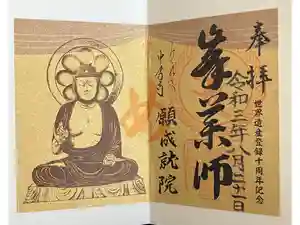 奉拝
世界遺産登録十周年記念
令和三年八月二十一日
峯薬師
中尊寺
願成就院